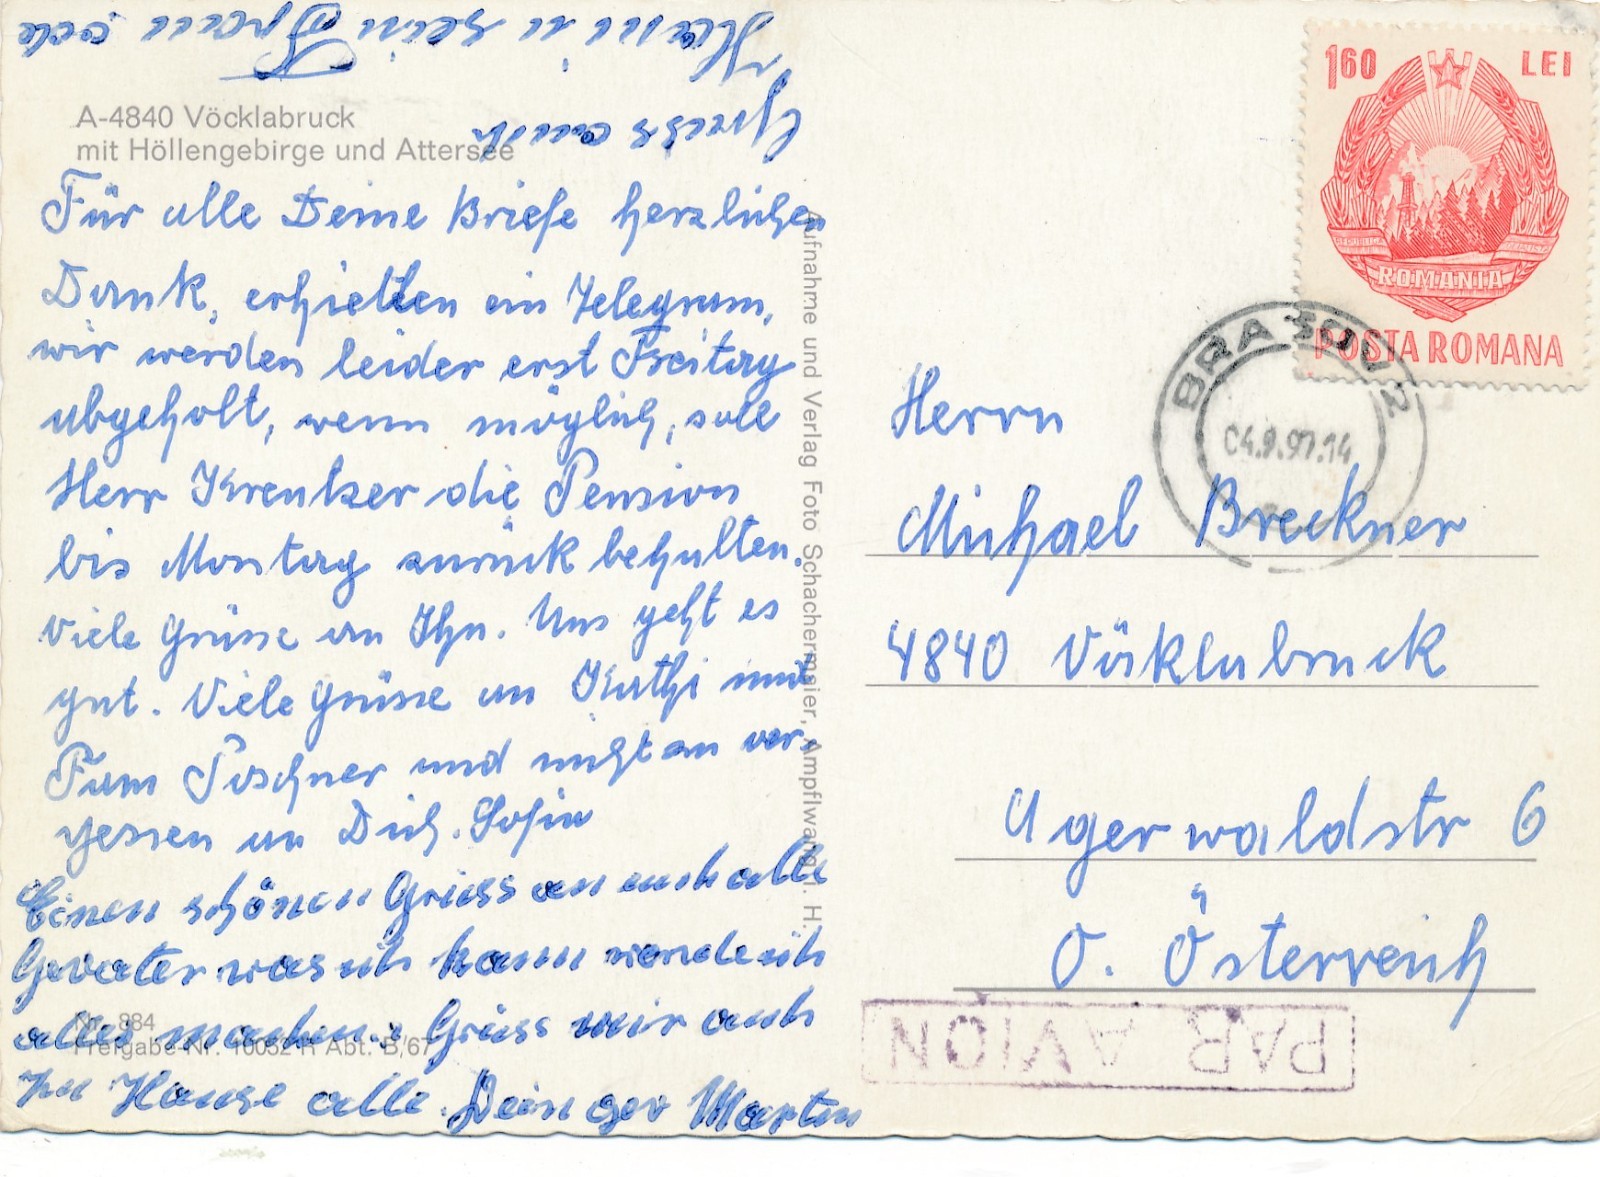 A-4840 Vöcklabruck
mit Höllengebirge und Attersee
Für alle Deine Briefe herzlichen
Dank, erhielten ein Telegram,
wir werden leider erst Freitag
abgeholt, wenn möglich, soll
Herr Kreutzer die Pension
bis Montag zurück behalten.
Viele Grüsse an Ihn. Uns geht es
gut. Viele Grüsse an Kathi und
Fam Poschner und nicht zu ver-
gessen an Dich. Sofia
Einen schönen Gruss an euch alle
Gevater was ich kann werde ich
alles machen. Grüss mir auch
zu Hause alle. Dein gev Marten
Grüss auch
u sein Frau
Nr. 884
Freigabe-Nr. 10032 R Abt. B/67
Aufnahme und Verlag Foto Schachermaier, Ampflwang i. H.
1'60 LEI
ROMANIA
POSTA ROMANA
BRASOV 2
04.9.97.14
Herrn
Michael Breckner
4840 Vöcklabruck
Agerwaldstr 6
O. Österreich
PAR AVION